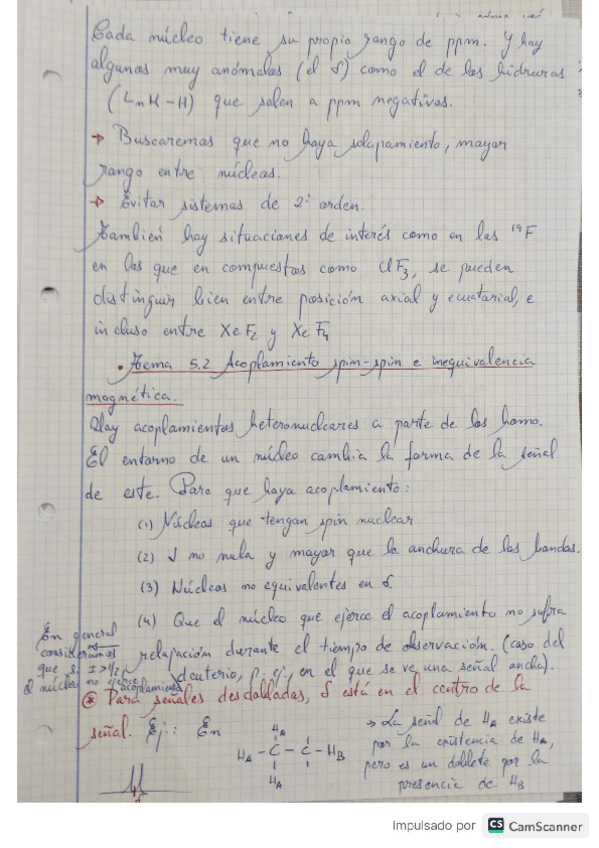 Cada núcleo tiene su propio rango de ppm. Y hay
algunos muy anómalos (el δ) como el de los hidruros
(LnM-H) que salen a ppm negativos.
→ Buscaremos que no haya solapamiento, mayor
rango entre núcleos.
→ Evitar sistemas de 2º orden.
También hay situaciones de interés como en los ¹⁹F
en los que en compuestos como ClF₃, se pueden
distinguir bien entre posición axial y ecuatorial, e
incluso entre XeF₂ y XeF₄
• Tema 5.2 Acoplamiento spin-spin e inequivalencia
magnética.
Hay acoplamientos heteronucleares a parte de los homo.
El entorno de un núcleo cambia la forma de la señal
de este. Para que haya acoplamiento:
(1) Núcleos que tengan spin nuclear
(2) J no nula y mayor que la anchura de las bandas.
(3) Núcleos no equivalentes en δ.
(4) Que el núcleo que ejerce el acoplamiento no sufra
relajación durante el tiempo de observación. (caso del
deuterio, p. ej, en el que se ve una señal ancha).
En general
consideramos
que si I>1/2,
el núcleo no ejerce
acoplamiento
⊛ Para señales desdobladas, δ está en el centro de la
señal. Ej: En
H_A
H_A - C - C - H_B
H_A
→ La señal de H_A existe
por la existencia de H_A,
pero es un doblete por la
presencia de H_B
Impulsado por CS CamScanner